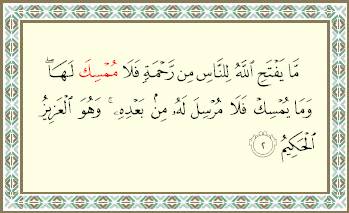 مَّا يَفْتَحِ ٱللَّهُ لِلنَّاسِ مِن رَّحْمَةٍ فَلَا مُمْسِكَ لَهَاۖ
وَمَا يُمْسِكْ فَلَا مُرْسِلَ لَهُۥ مِنۢ بَعْدِهِۦۚ وَهُوَ ٱلْعَزِيزُ
ٱلْحَكِيمُ ٢